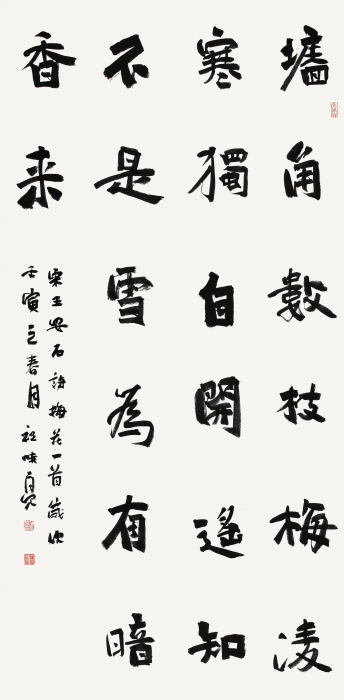 墻角數枝梅凌
寒獨自開遙知
不是雪為有暗
香来
宋王安石詩梅花一首歲次
壬寅之春月